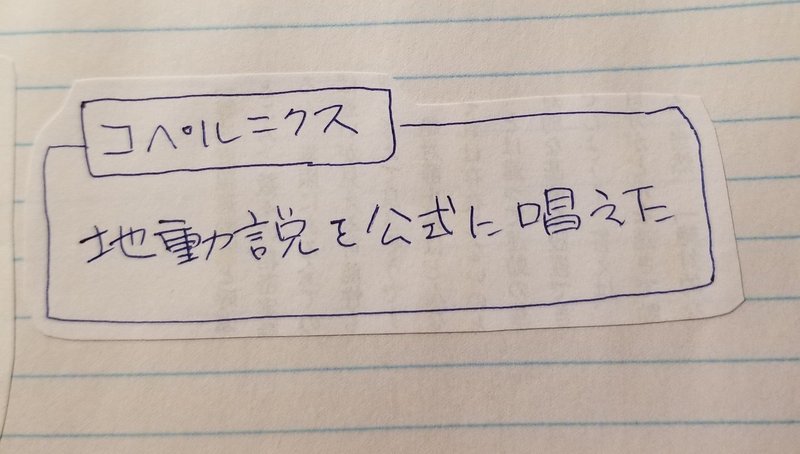 コペルニクス
地動説を公式に唱えた